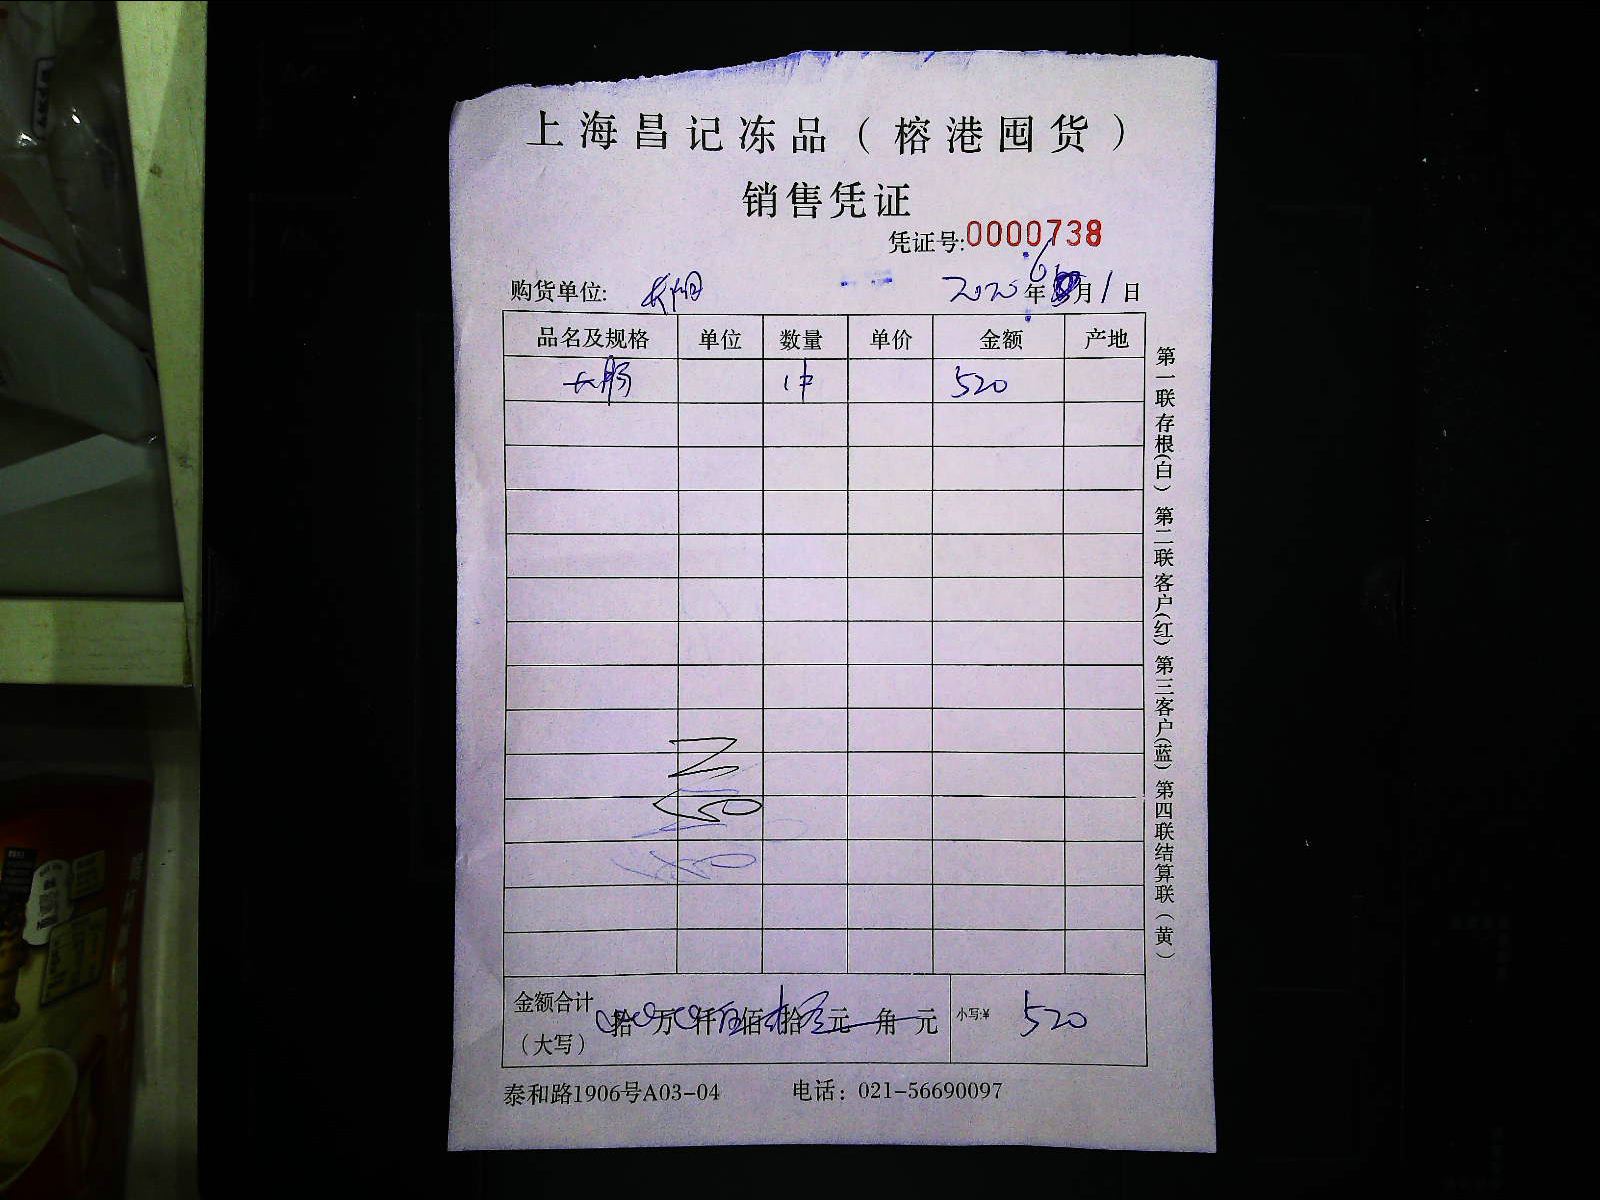 上海昌记冻品（榕港囤货）
销售凭证
凭证号:0000738
购货单位: 2020年6月1日
品名及规格 单位 数量 单价 金额 产地
大肠 1件 520
第一联存根(白) 第二联客户(红) 第三客户(蓝) 第四联结算联(黄)
金额合计
(大写) 拾 万 仟 伍佰 拾 元 角 元 小写:¥ 520
泰和路1906号A03-04 电话: 021-56690097